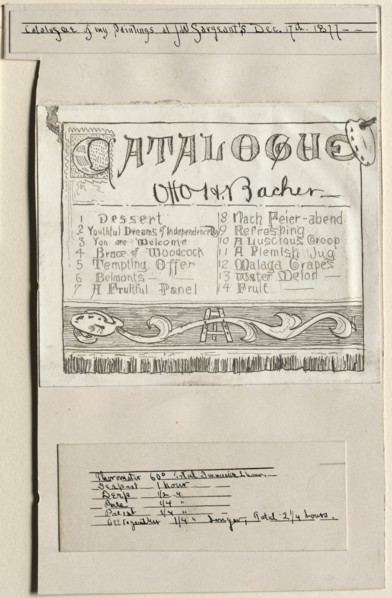 Catalogue of my Paintings at J.W Sargeant's Dec. 17th. 1877 - -
CATALOGUE
Otto H. Bacher
1 Dessert
2 Youthful Dreams of Independence Day
3 You are Welcome
4 Brace of Woodcock
5 Tempting Offer
6 Belmonts -
7 A Fruitful Panel
8 Nach Feier-abend
9 Refreshing
10 A Luscious Group
11 A Flemish Jug
12 Malaga Grapes
13 Water Melon -
14 Fruit
60° Total hour.
1 hour
Deep 1/2 "
Pale 1/4 "
1/4 "
All together 1/4 " longer, Total 2 1/4 hours.